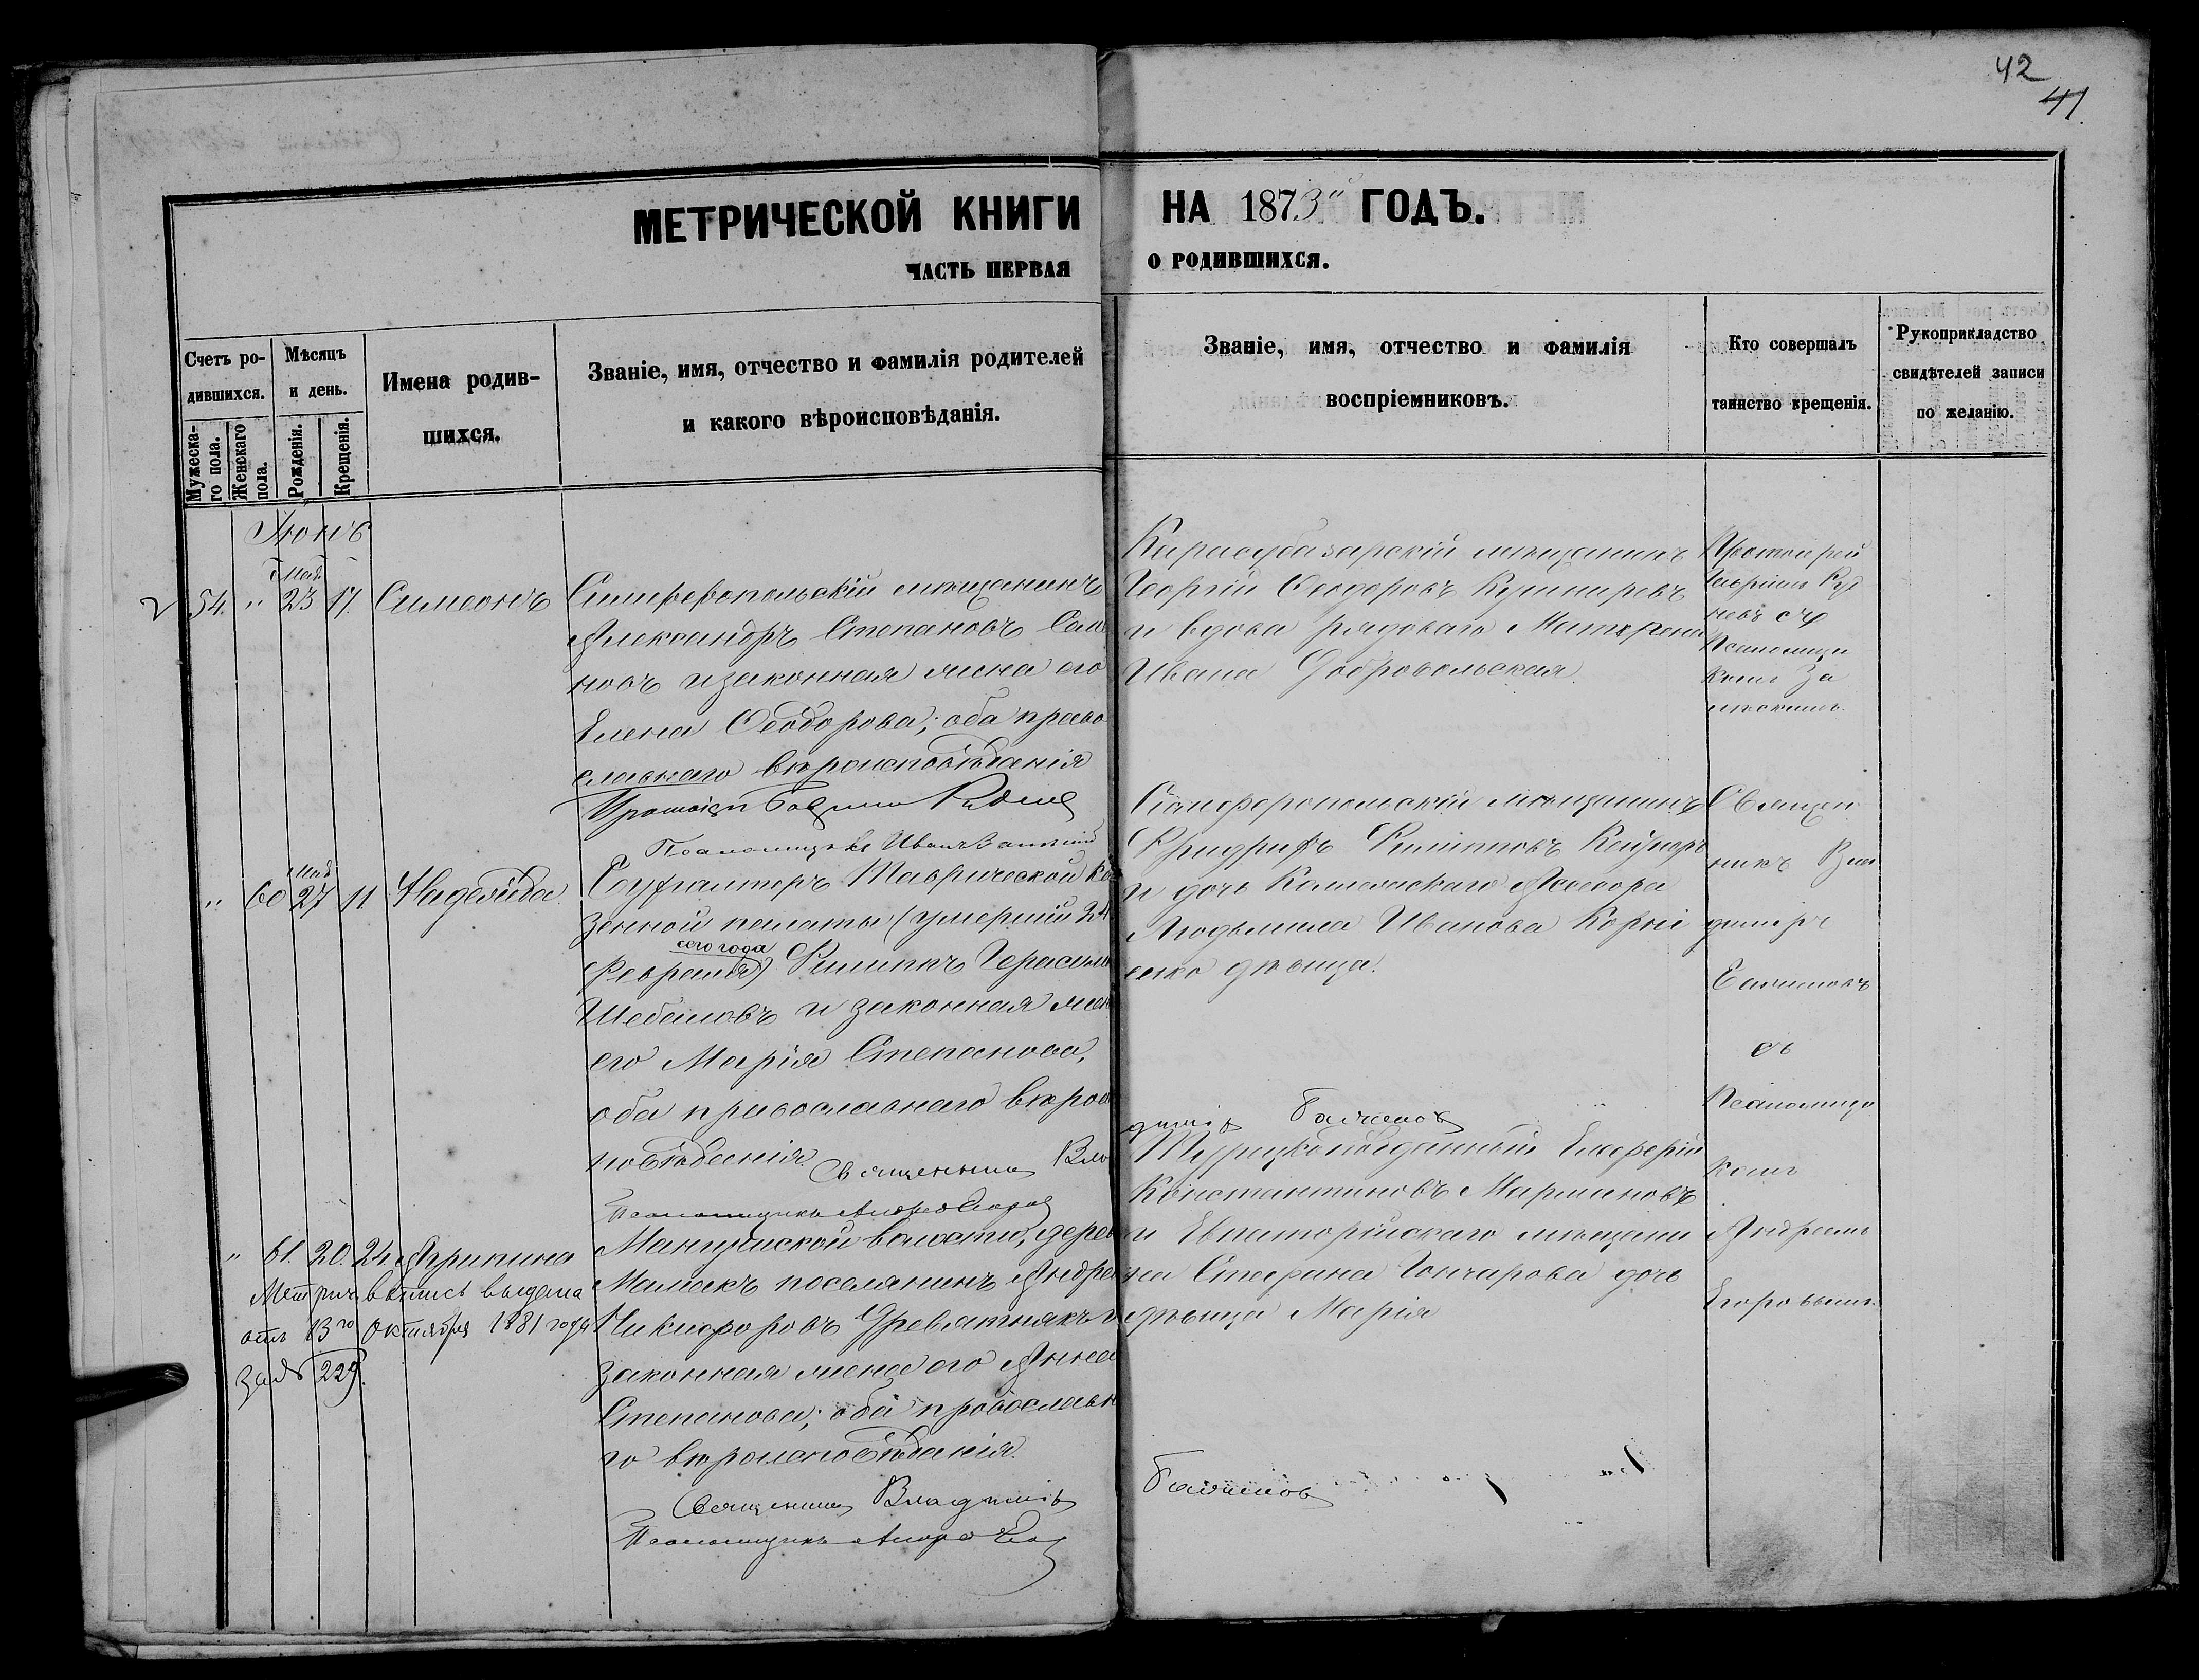 42
41
МЕТРИЧЕСКОЙ КНИГИ НА 1873й ГОДЪ.
ЧАСТЬ ПЕРВАЯ О РОДИВШИХСЯ.
Счетъ ро-
дившихся.
Мужеска-
го пола.
Женскаго
пола.
Мѣсяцъ
и день.
Рожденія.
Крещенія.
Имена родив-
шихся.
Званіе, имя, отчество и фамилія родителей
и какого вѣроисповѣданія.
Званіе, имя, отчество и фамилія
воспріемниковъ.
Кто совершалъ
таинство крещенія.
Рукоприкладство
свидѣтелей записи
по желанію.
Іюнь
Мая
54. " 23 17. Симеонъ
Симферопольскій мѣщанинъ
Александръ Степановъ Сем
новъ и законная жена его
Елена Ѳеодорова; оба право
славнаго вѣроисповѣданія
Протоіерей Гавріилъ Руднев
Псаломщикъ Иванъ
Карасубазарскій мѣщанинъ
Георгій Ѳеодоровъ Кушнировъ
и вдова рядоваго Матрена
Ивана Добровольская
Протоіерей
Гавріилъ Руд
невъ съ
Псаломщи
комъ За
Мая
" 60 27 11. Надежда
Бухгалтеръ Таврической Ка
зенной палаты (умершій 24
сего года
Февраля) Филиппъ Герасим
Шебаловъ и законная жен
его Марія Степанова,
оба православнаго вѣрои
повѣданія
Священникъ Вла
димір Баличевъ
Псаломщикъ Андрей Егоров
Симферопольскій мѣщанинъ
Фридрихъ Филипповъ
и дочь Коллежскаго Ассесора
Людмила Иванова Корніе
енко дѣвица.
Священ
никъ Вла
диміръ
съ
Псаломщи
комъ
Андреемъ
Егоровымъ
" 61. 20. 24. Агрипина
Метрич. выпись выдана
отъ 13го Октября 1881 года
за № 229.
Мангушской волости, дерев
Мамакъ поселянинъ Андре
Никифоровъ Древятнякъ и
законная жена его Анна
Степанова; оба православн
го вѣроисповѣданія.
Священникъ Владимір
Псаломщикъ Андрей Его
Турецкоподданный Елеферій
Константиновъ Мармановъ
и Евпаторійскаго мѣщани
на Стефана Гончарова дочь
дѣвица Марія